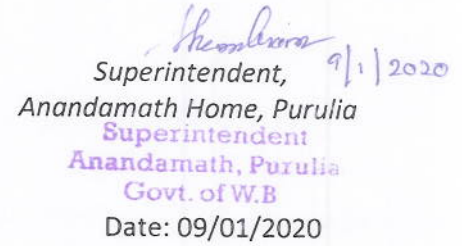 9/1/2020
Superintendent,
Anandamath Home, Purulia
Superintendent
Anandamath, Purulia
Govt. of W.B
Date: 09/01/2020